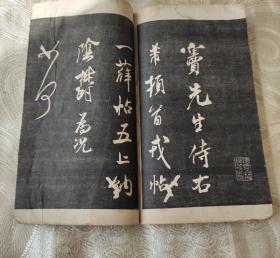 竇先生侍右
芾頓首戎帖
一薛帖五上納
陰鬱為況
如何